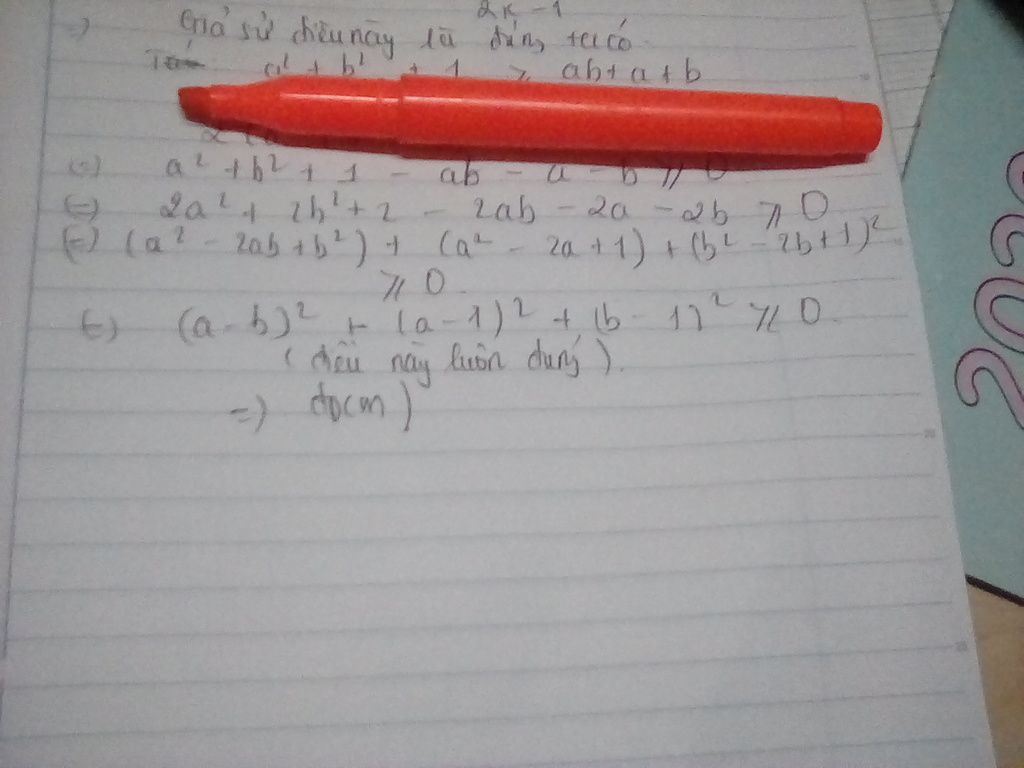 2k - 1
=) Giả sử điều này là đúng ta có
a² + b² + 1 ≥ ab + a + b
(=) a² + b² + 1 - ab - a - b ≥ 0
(=) 2a² + 2b² + 2 - 2ab - 2a - 2b ≥ 0
(=) (a² - 2ab + b²) + (a² - 2a + 1) + (b² - 2b + 1)²
≥ 0
(=) (a - b)² + (a - 1)² + (b - 1)² ≥ 0
(điều này luôn đúng).
=) đpcm)
202